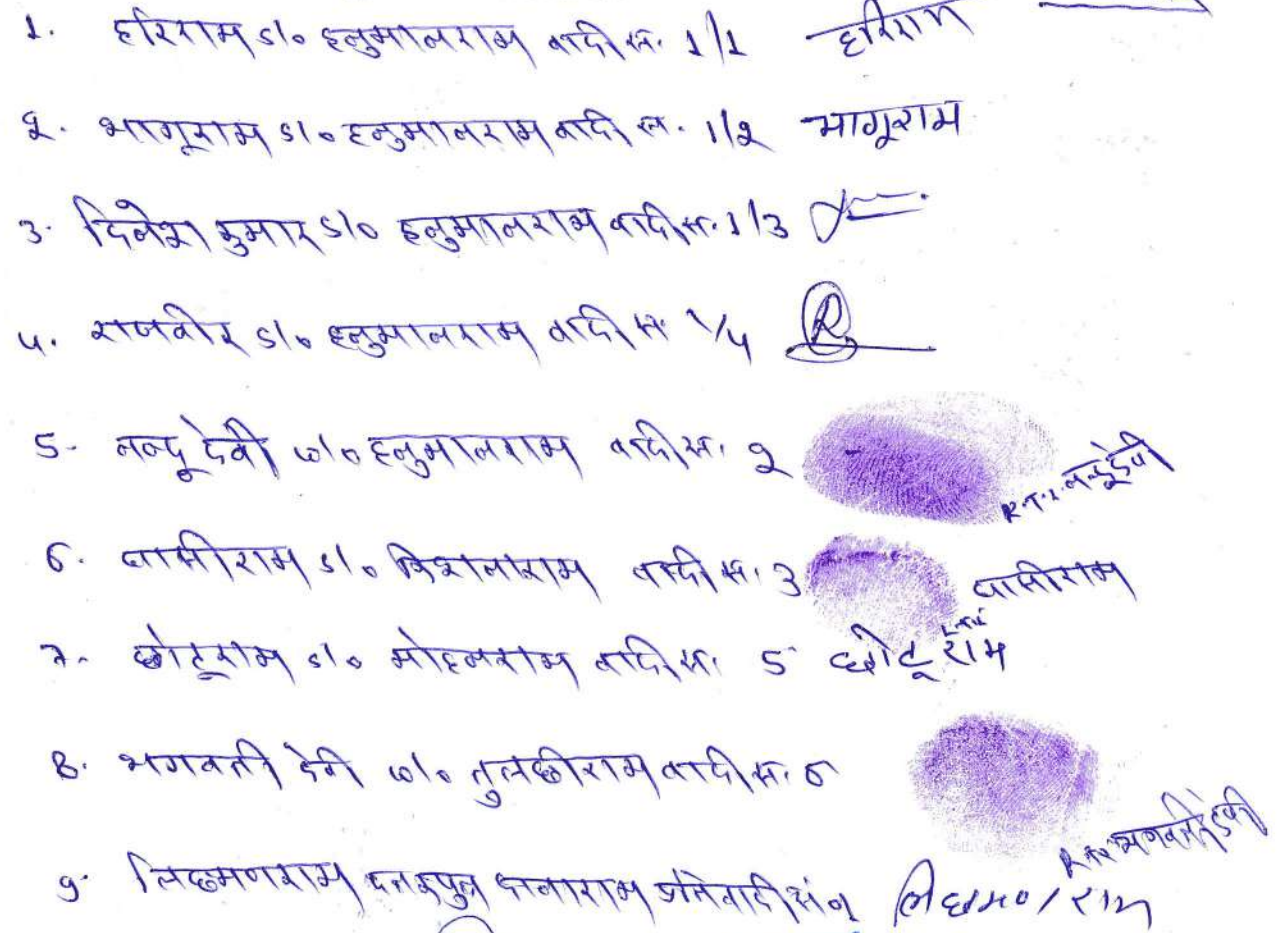 1. हरिराम s/o हनुमानराम वादी सं. 1/1 हरिराम
2. भागूराम s/o हनुमानराम वादी सं. 1/2 भागूराम
3. दिनेश कुमार s/o हनुमानराम वादी सं. 1/3
4. राजवीर s/o हनुमानराम वादी सं 1/4 R
5- नन्दू देवी w/o हनुमानराम वादी सं. 2
नन्दू देवी
6. घासीराम s/o किशनाराम वादी सं. 3 घासीराम
7- छोटूराम s/o मोहनराम वादी सं. 5 छोटू राम
8. भगवती देवी w/o तुलछीराम वादी सं. 6
भगवती देवी
9- लिछमणराम दत्तकपुत्र दानाराम लिछमण राम